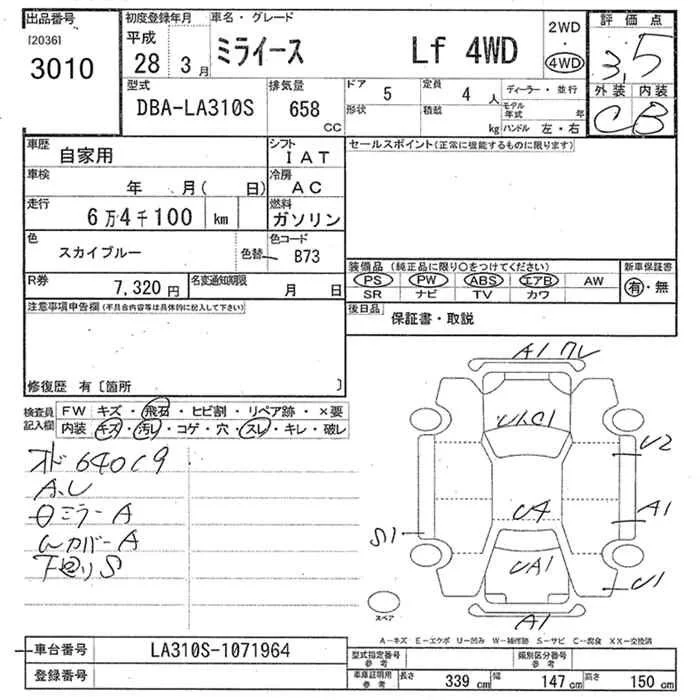 出品番号 初度登録年月 車名・グレード 2WD・4WD 評価点
[2036] 3010 平成 28 3月 ミライース Lf 4WD 3,5
型式 排気量 ドア 5 定員 4人 ディーラー・並行 外装 内装
DBA-LA310S 658 CC 形状 積載 kg モデル年式 年 ハンドル 左・右 C B
車歴 自家用 シフト IAT セールスポイント(正常に機能するものに限ります)
車検 年 月( 日) 冷房 AC
走行 6万4千100 km 燃料 ガソリン
色 スカイブルー 色替 色コード B73
装備品 (純正品に限り○をつけてください) 新車保証書
R券 7,320円 名変通知期限 月 日 PS PW ABS エアB AW 有・無
SR ナビ TV カワ
注意事項申告欄(不具合内容等は具体的に記入して下さい) 後日品 保証書・取説
修復歴 有〔箇所 〕
検査員記入欄 FW キズ・飛石・ヒビ割・リペア跡・×要
内装 キズ・汚レ・コゲ・穴・スレ・キレ・破レ
オド 64009
A.U
ミラーA
カバーA
下回りS
A1 ワレ
U2
UA
A1
S1
UA1
U1
A1
スペア
A-キズ E-エクボ U-凹み W-補修跡 S-サビ C-腐食 XX-交換済
車台番号 LA310S-1071964 型式指定番号 参考 類別区分番号 参考
登録番号 車庫証明用 参考 長さ 339 cm 幅 147 cm 高さ 150 cm